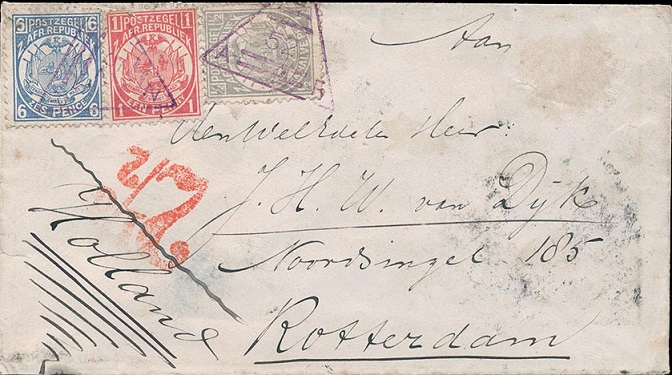 6 POSTZEGEL 6
Z. AFR. REPUBLIEK
6 ZES PENCE 6
1 POSTZEGEL 1
Z. AFR. REPUBLIEK
1 EEN PENNY 1
½ POSTZEGEL ½
Aan
den Weledelen Heer:
J. H. W. van Dijk
Noordsingel 185
Rotterdam
Holland